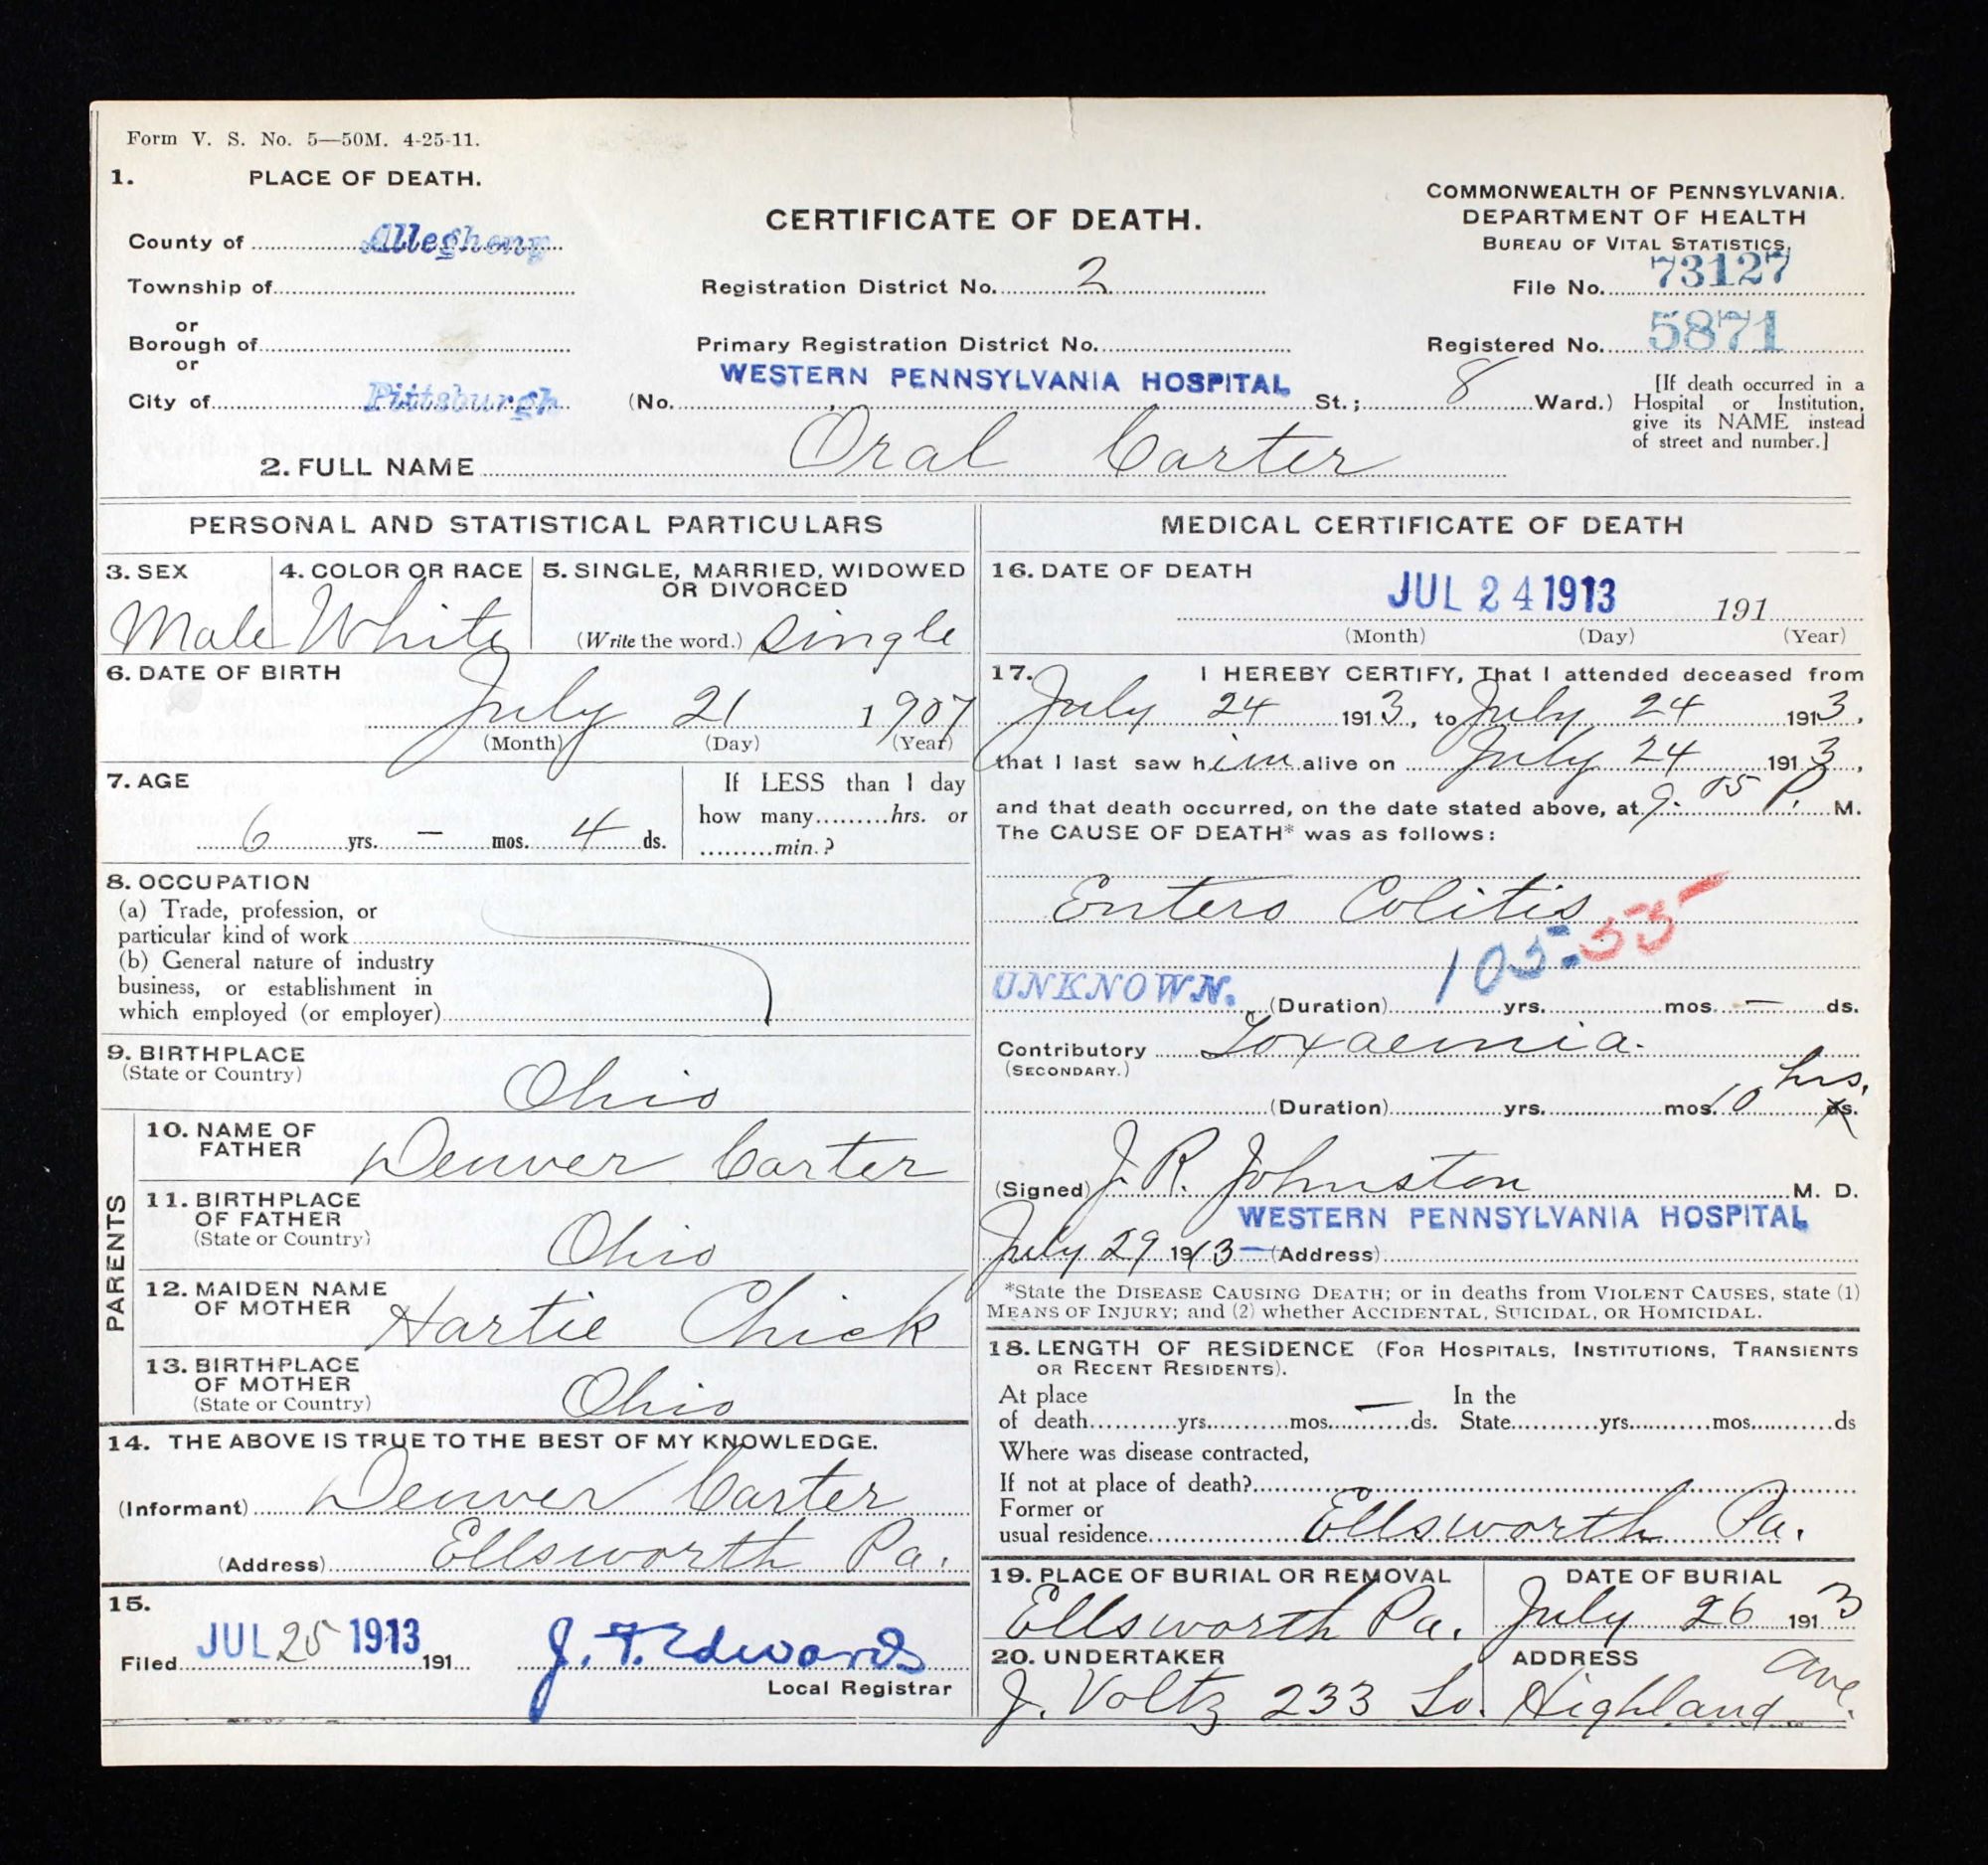 Form V. S. No. 5—50M. 4-25-11.
1. PLACE OF DEATH.
County of Allegheny
Township of
or
Borough of
or
City of Pittsburgh
CERTIFICATE OF DEATH.
Registration District No. 2
Primary Registration District No.
(No. WESTERN PENNSYLVANIA HOSPITAL St.; 8 Ward.)
COMMONWEALTH OF PENNSYLVANIA.
DEPARTMENT OF HEALTH
BUREAU OF VITAL STATISTICS.
File No. 73127
Registered No. 5871
[If death occurred in a
Hospital or Institution,
give its NAME instead
of street and number.]
2. FULL NAME Oral Carter
PERSONAL AND STATISTICAL PARTICULARS
3. SEX
Male
4. COLOR OR RACE
White
5. SINGLE, MARRIED, WIDOWED
OR DIVORCED
(Write the word.) Single
6. DATE OF BIRTH
July 21 1907
(Month) (Day) (Year)
7. AGE
6 yrs. — mos. 4 ds.
If LESS than 1 day
how many.........hrs. or
.........min.?
8. OCCUPATION
(a) Trade, profession, or
particular kind of work
(b) General nature of industry
business, or establishment in
which employed (or employer)
9. BIRTHPLACE
(State or Country)
Ohio
PARENTS
10. NAME OF
FATHER
Denver Carter
11. BIRTHPLACE
OF FATHER
(State or Country)
Ohio
12. MAIDEN NAME
OF MOTHER
Hartie Chick
13. BIRTHPLACE
OF MOTHER
(State or Country)
Ohio
14. THE ABOVE IS TRUE TO THE BEST OF MY KNOWLEDGE.
(Informant) Denver Carter
(Address) Ellsworth Pa.
15.
Filed JUL 25 1913 191
J. F. Edwards
Local Registrar
MEDICAL CERTIFICATE OF DEATH
16. DATE OF DEATH
JUL 24 1913 191
(Month) (Day) (Year)
17. I HEREBY CERTIFY, That I attended deceased from
July 24 1913, to July 24 1913,
that I last saw him alive on July 24 1913,
and that death occurred, on the date stated above, at 9.05 P. M.
The CAUSE OF DEATH* was as follows:
Entero Colitis
105 = 55
UNKNOWN. (Duration) yrs. mos. — ds.
Contributory Toxaemia.
(SECONDARY.)
(Duration) yrs. mos. 10 hrs. ds.
(Signed) J. R. Johnston M. D.
WESTERN PENNSYLVANIA HOSPITAL
July 29 1913 — (Address)
*State the DISEASE CAUSING DEATH; or in deaths from VIOLENT CAUSES, state (1)
MEANS OF INJURY; and (2) whether ACCIDENTAL, SUICIDAL, OR HOMICIDAL.
18. LENGTH OF RESIDENCE (FOR HOSPITALS, INSTITUTIONS, TRANSIENTS
OR RECENT RESIDENTS).
At place In the
of death yrs. mos. — ds. State yrs. mos. ds
Where was disease contracted,
If not at place of death?
Former or
usual residence Ellsworth Pa.
19. PLACE OF BURIAL OR REMOVAL
Ellsworth Pa.
DATE OF BURIAL
July 26 1913
20. UNDERTAKER
J. Voltz 233 So.
ADDRESS
Highland Ave.